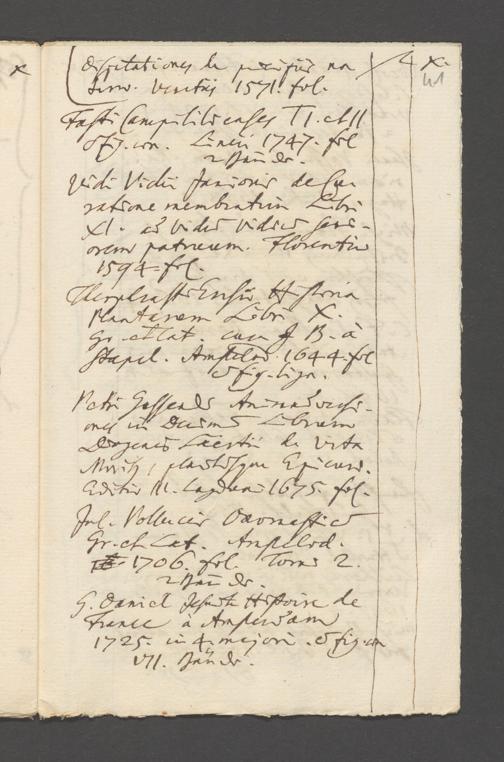 disputationes de
Vindus 1571. fol.
Fasti Campililienses T I. et II
c fig. æn. Lincii 1747. fol
2 Bände.
Vidi Vidii Junioris de Cu-
ratione membratim Libri
XI. Vidus Vidius
patruum. Florentiæ
1594. fol.
Theophrasti Eresii Historia
Plantarum Libri X.
Gr. et Lat cum J B. à
Stapel. Amstelod. 1644. fol
c fig. lign.
Petri Gassendi Animadversi-
ones in Decimum Librum
Diogenis Laertii de Vita
Morib, placitisque Epicuri.
Editio III. Lugduni 1675. fol.
Jul. Pollucis Onomasticō
Gr. et Lat. Amstelod.
1706. fol. Tomi 2.
2 Bände.
G. Daniel Jesuite Histoire de
France à Amsterdam
1725. in 4. majori. c fig. æn
VII. Bände.
x
41